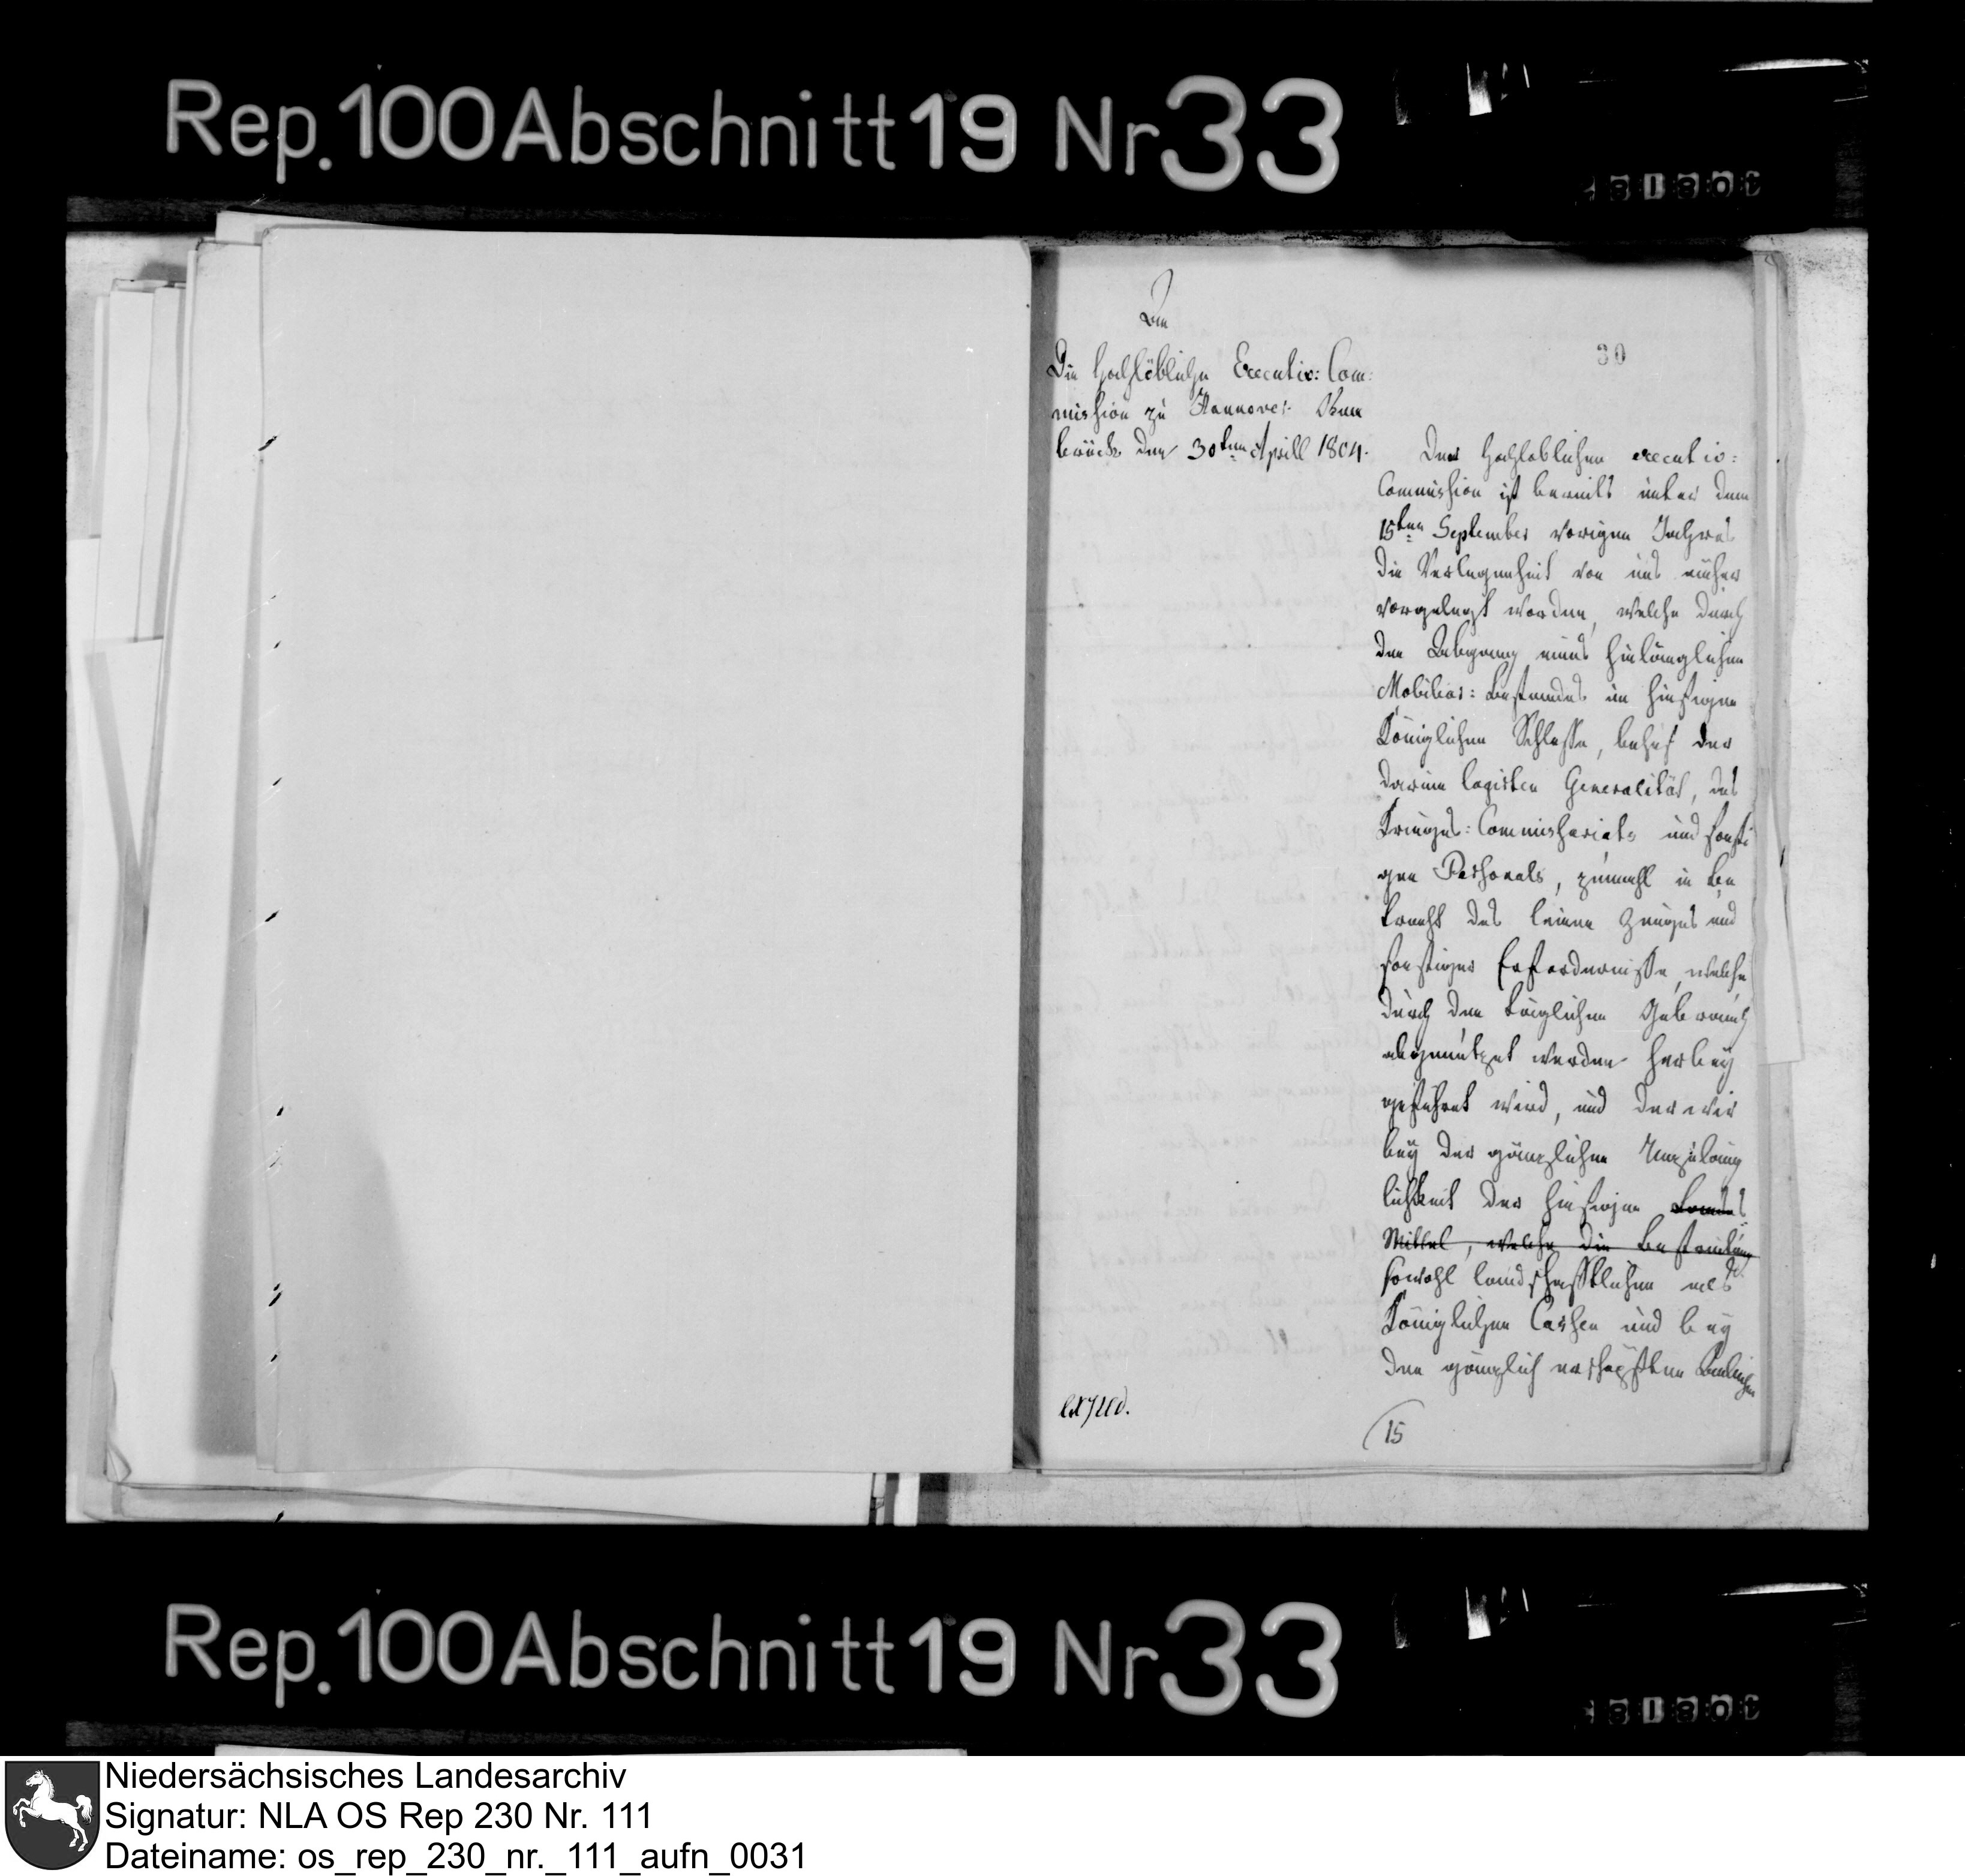 Rep. 100 Abschnitt 19 Nr 33
An
Die hochlöbliche Executiv: Com:
mission zu Hannover. Osna
brück den 30ten Aprill 1804.
30
Der hochloblichen executiv:
Commission ist bereits unter dem
15ten September vorigen Jahres
die Verlegenheit von uns
vorgelegt worden, welche durch
den Abgang eines hinlänglichen
Mobiliar: Bestandes im hiesigen
Königlichen Schlosse, behuf der
darinn logirten Generalität, des
Krieges: Commissariats und sonsti
gen Personals, zumahl in Be
tracht des leinen Zeuges und
sonstiger Erfordernisse, welche
durch den täglichen Gebrauch
abgenutzet werden herbey
geführet wird, und der wir
bey der gänzlichen Unzuläng
lichkeit der hiesigen Landes
Mittel, welche die Bestreitung
sowohl landschafftlichen als
Königlichen Cassen und bey
den gänzlich erschöpften
15
Rep. 100 Abschnitt 19 Nr 33
Niedersächsisches Landesarchiv
Signatur: NLA OS Rep 230 Nr. 111
Dateiname: os_rep_230_nr._111_aufn_0031